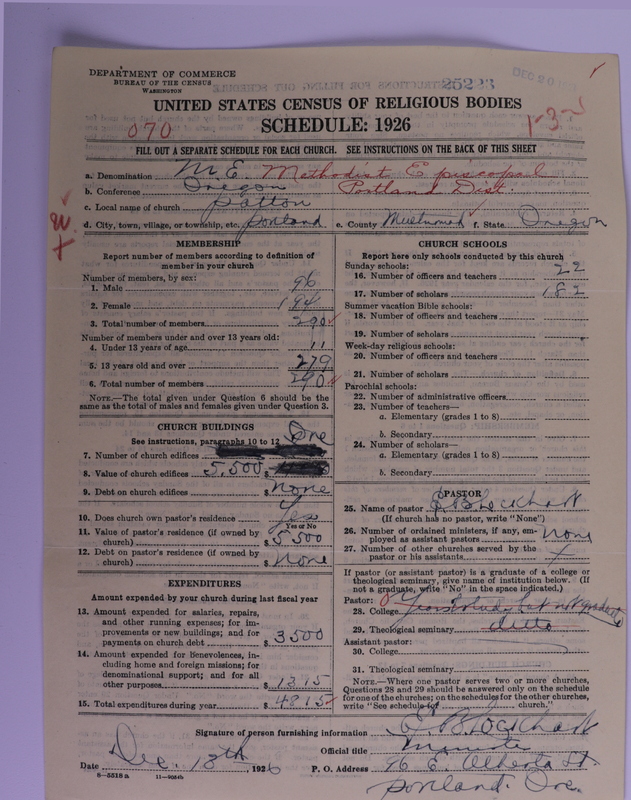 DEPARTMENT OF COMMERCE
BUREAU OF THE CENSUS
WASHINGTON
25223
DEC 20
UNITED STATES CENSUS OF RELIGIOUS BODIES
SCHEDULE: 1926
070
1-3-
FILL OUT A SEPARATE SCHEDULE FOR EACH CHURCH. SEE INSTRUCTIONS ON THE BACK OF THIS SHEET
a. Denomination M. E. Methodist Episcopal
b. Conference Oregon Portland Dist.
c. Local name of church Patton
d. City, town, village, or township, etc. Portland e. County Multnomah f. State Oregon
MEMBERSHIP
Report number of members according to definition of
member in your church
Number of members, by sex:
1. Male 96
2. Female 194
3. Total number of members 290
Number of members under and over 13 years old:
4. Under 13 years of age 11
5. 13 years old and over 279
6. Total number of members 290
NOTE.—The total given under Question 6 should be
the same as the total of males and females given under Question 3.
CHURCH BUILDINGS
See instructions, paragraphs 10 to 12
7. Number of church edifices One
8. Value of church edifices 5,500 $
9. Debt on church edifices $ None
10. Does church own pastor's residence Yes
Yes or No
11. Value of pastor's residence (if owned by
church) $ 5500
12. Debt on pastor's residence (if owned by
church) $ None
EXPENDITURES
Amount expended by your church during last fiscal year
13. Amount expended for salaries, repairs,
and other running expenses; for im-
provements or new buildings; and for
payments on church debt $ 3500
14. Amount expended for benevolences, in-
cluding home and foreign missions; for
denominational support; and for all
other purposes $ 1315
15. Total expenditures during year $ 4815
CHURCH SCHOOLS
Report here only schools conducted by this church
Sunday schools:
16. Number of officers and teachers 22
17. Number of scholars 182
Summer vacation Bible schools:
18. Number of officers and teachers
19. Number of scholars
Week-day religious schools:
20. Number of officers and teachers
21. Number of scholars
Parochial schools:
22. Number of administrative officers
23. Number of teachers—
a. Elementary (grades 1 to 8)
b. Secondary
24. Number of scholars—
a. Elementary (grades 1 to 8)
b. Secondary
PASTOR
25. Name of pastor E B Lockhart
(If church has no pastor, write "None")
26. Number of ordained ministers, if any, em-
ployed as assistant pastors None
27. Number of other churches served by the
pastor or his assistants
If pastor (or assistant pastor) is a graduate of a college or
theological seminary, give name of institution below. (If
not a graduate, write "No" in the space indicated.)
Pastor:
28. College years study but not graduate
29. Theological seminary ditto
Assistant pastor:
30. College
31. Theological seminary
NOTE.—Where one pastor serves two or more churches,
Questions 28 and 29 should be answered only on the schedule
for one of the churches; on the schedules for the other churches,
write "See schedule for church."
Signature of person furnishing information E. B. Lockhart
Official title Minister
Date Dec. 18th, 1926 P. O. Address 96 E. Alberta St.
8—5518a 11—9054b Portland. Ore.